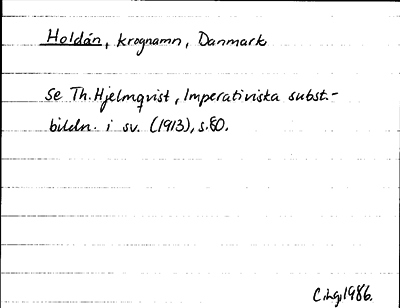 Holdán, krognamn, Danmark
se Th. Hjelmqvist, Imperativiska subst.-
bildn. i sv. (1913), s. 80.
1986.